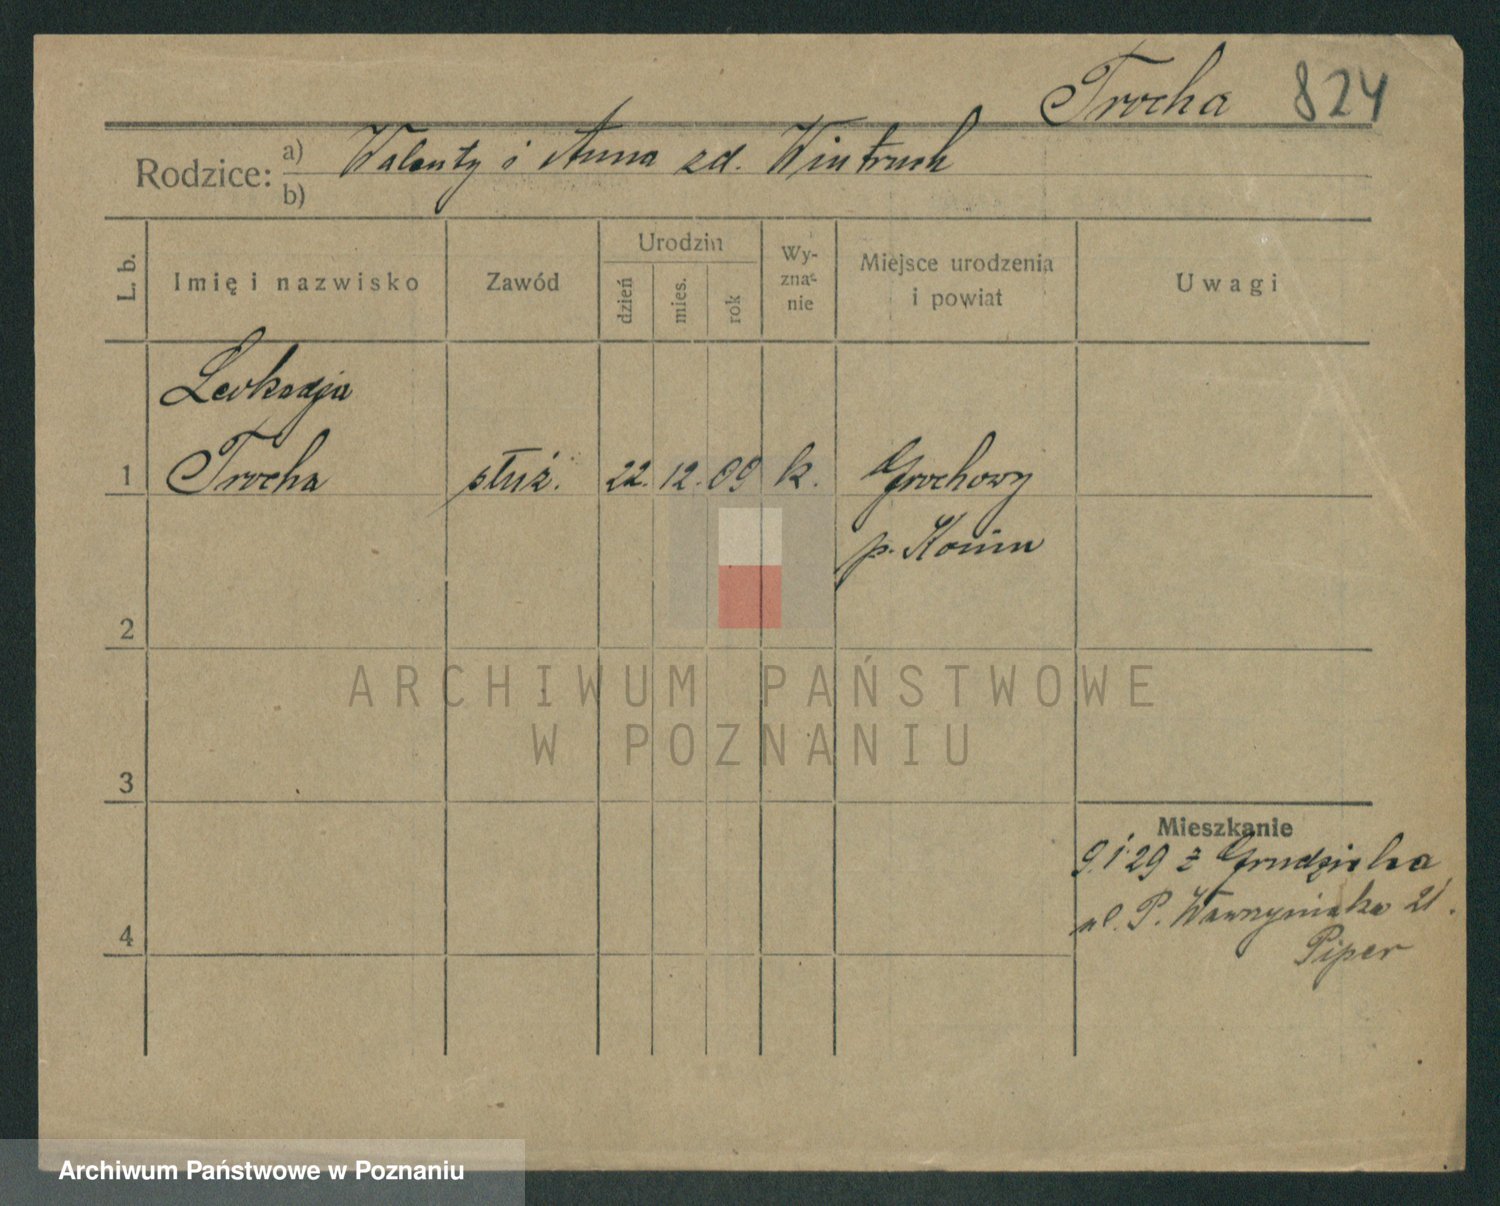 Trocha 824
Rodzice: a) Walenty i Anna zd. Wintruch
b)
L. b. Imię i nazwisko Zawód Urodzin dzień mies. rok Wyznanie Miejsce urodzenia i powiat Uwagi
Leokadja
1 Trocha służ. 22. 12. 09 k. Grochowy
p. Konin
2
ARCHIWUM PAŃSTWOWE
W POZNANIU
3
Mieszkanie
9.1.29 z Grudzielca
ul. P. Wawrzyniaka 21.
4 Piper
Archiwum Państwowe w Poznaniu